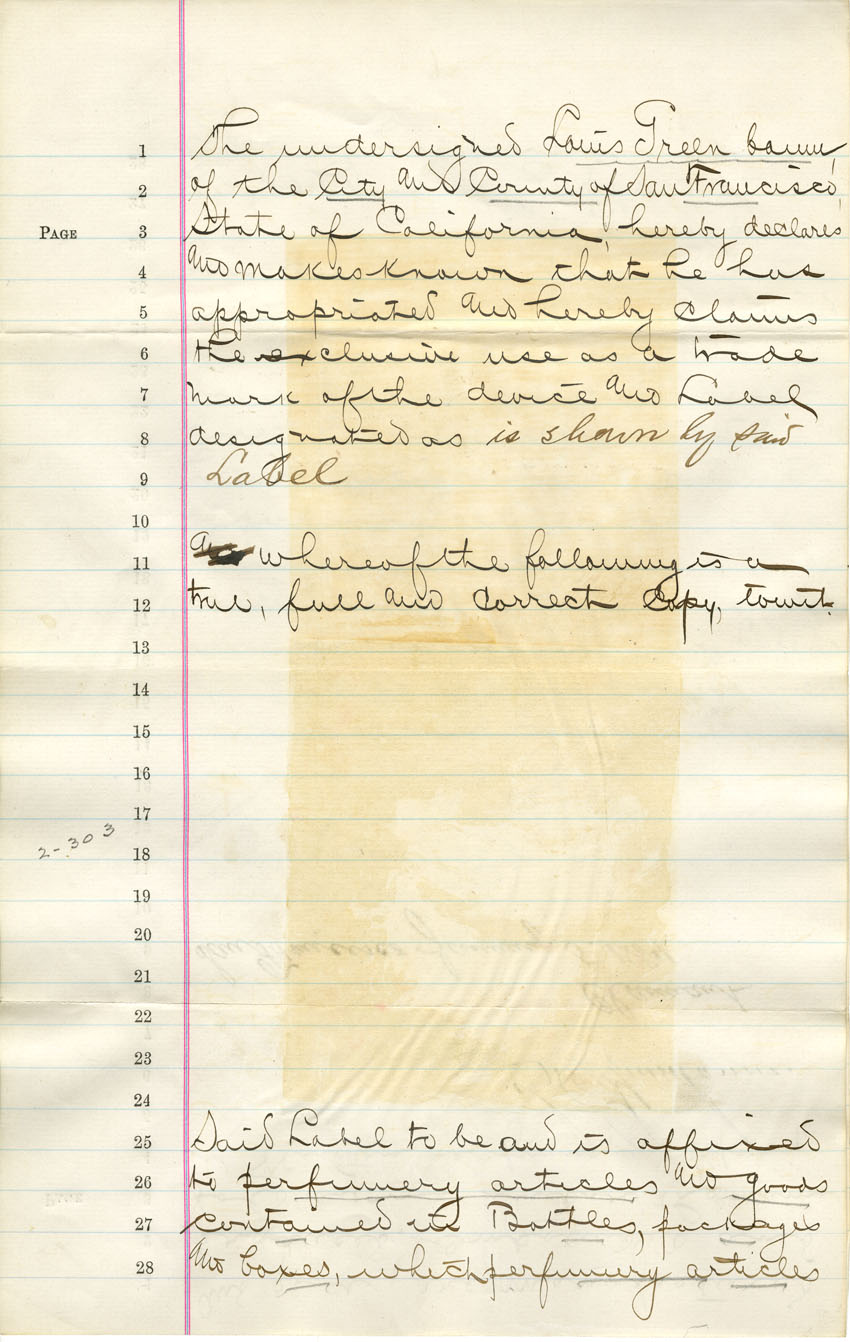 1 The undersigned Louis Greenbaum,
2 of the City and County of San Francisco,
PAGE 3 State of California, hereby declares
4 and makes known that he has
5 appropriated and hereby claims
6 the exclusive use as a trade
7 mark of the device and Label
8 designated as is shown by said
9 Label
10
11 whereof the following is a
12 true, full and correct copy, towit.
13
14
15
16
17
2-303
18
19
20
21
22
23
24
25 Said Label to be and is affixed
26 to perfumery articles and goods
27 contained in Bottles, packages
28 and boxes, which perfumery articles